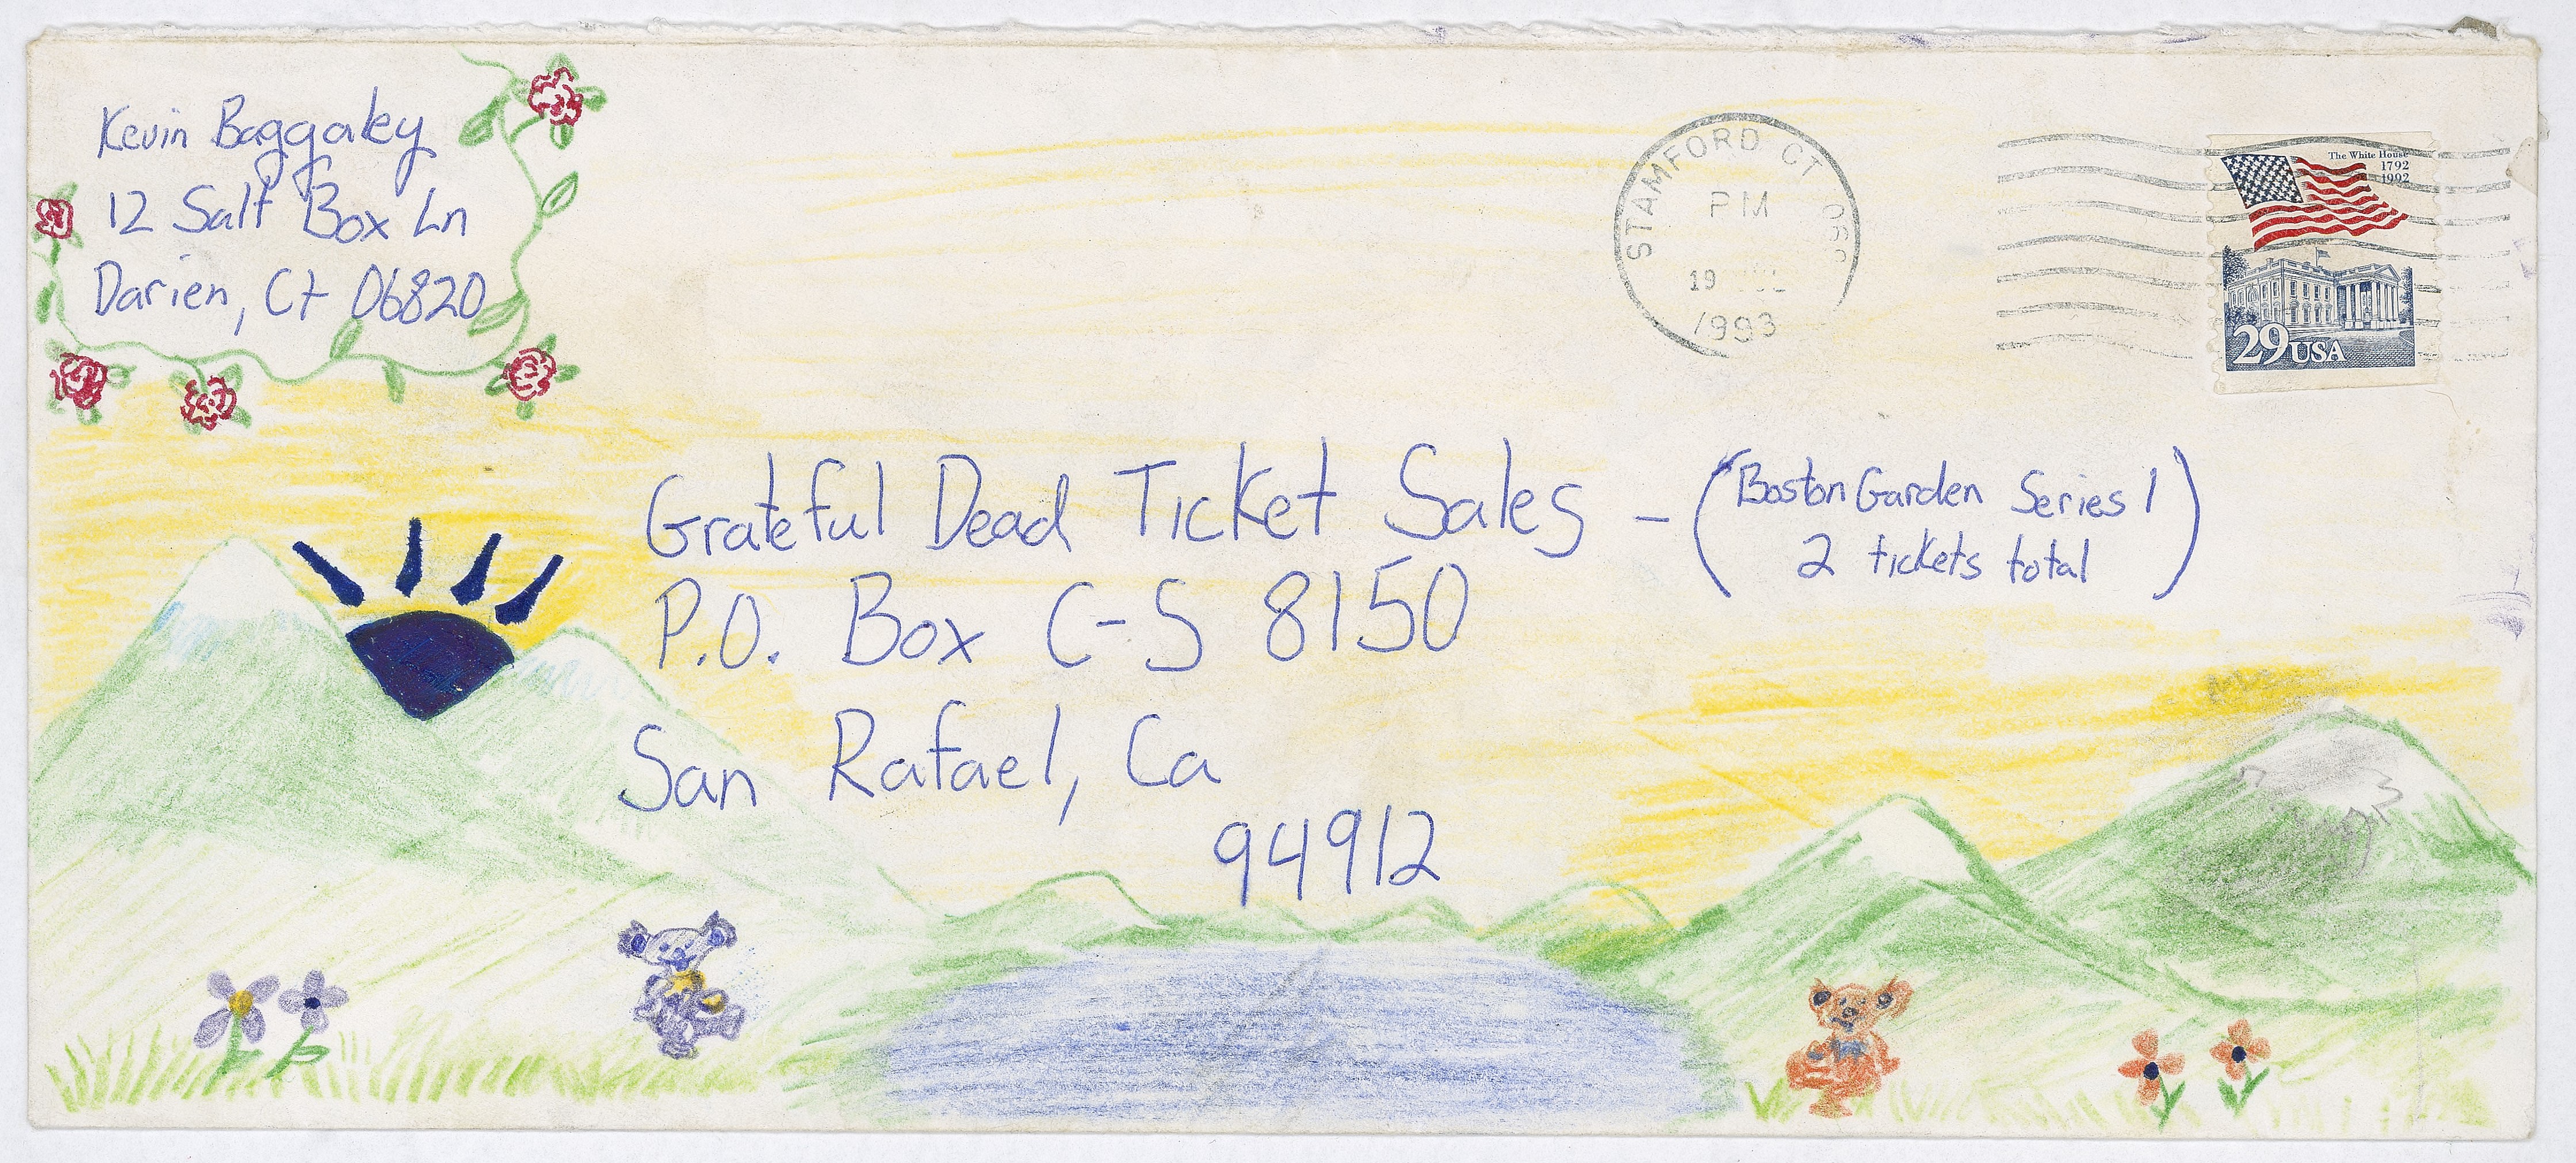 Kevin Baggaley
12 Salt Box Ln
Darien, Ct 06820
STAMFORD CT
PM
19
1993
The White House
1792
1992
29 USA
Grateful Dead Ticket Sales - (Boston Garden Series 1
2 tickets total)
P.O. Box C-S 8150
San Rafael, Ca
94912